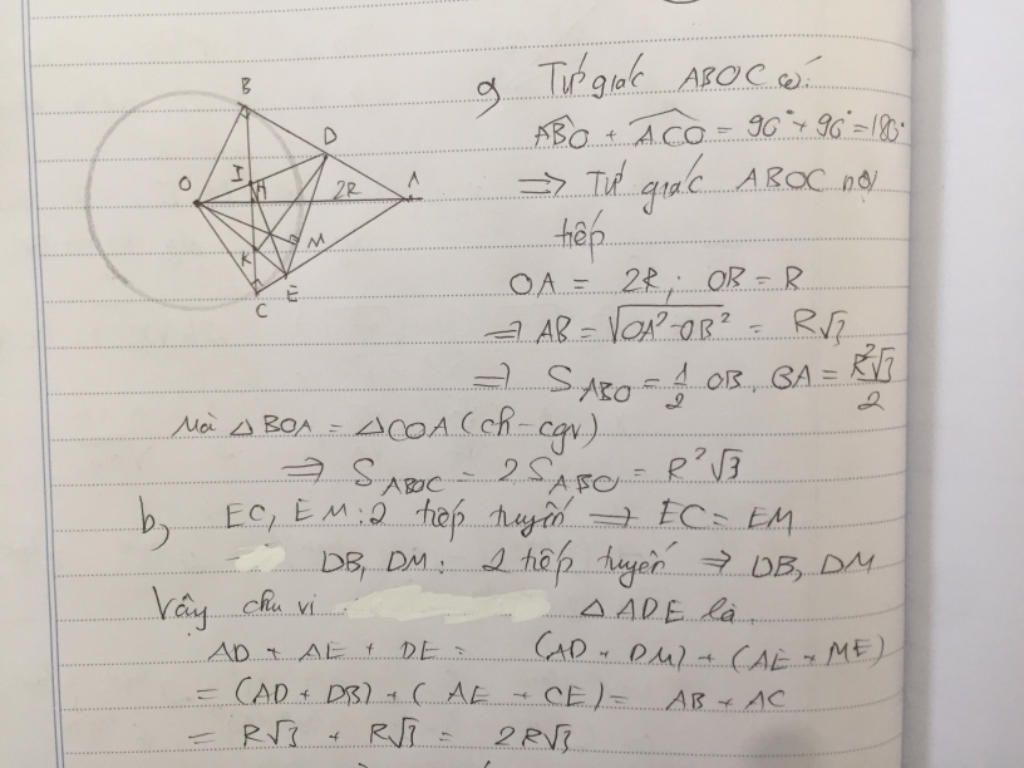 B
D
O
I
H
2R
A
M
K
C
E
a) Tứ giác ABOC có:
ABO + ACO = 90° + 90° = 180°
⇒ Tứ giác ABOC nội
tiếp
OA = 2R; OB = R
⇒ AB = √(OA² - OB²) = R√3
⇒ S_ABO = 1/2 OB. BA = R²√3/2
Mà △BOA = △COA (ch-cgv)
⇒ S_ABOC = 2S_ABO = R²√3
b) EC, EM: 2 tiếp tuyến ⇒ EC = EM
DB, DM: 2 tiếp tuyến ⇒ DB, DM
Vậy chu vi △ADE là
AD + AE + DE = (AD + DM) + (AE + ME)
= (AD + DB) + (AE + CE) = AB + AC
= R√3 + R√3 = 2R√3